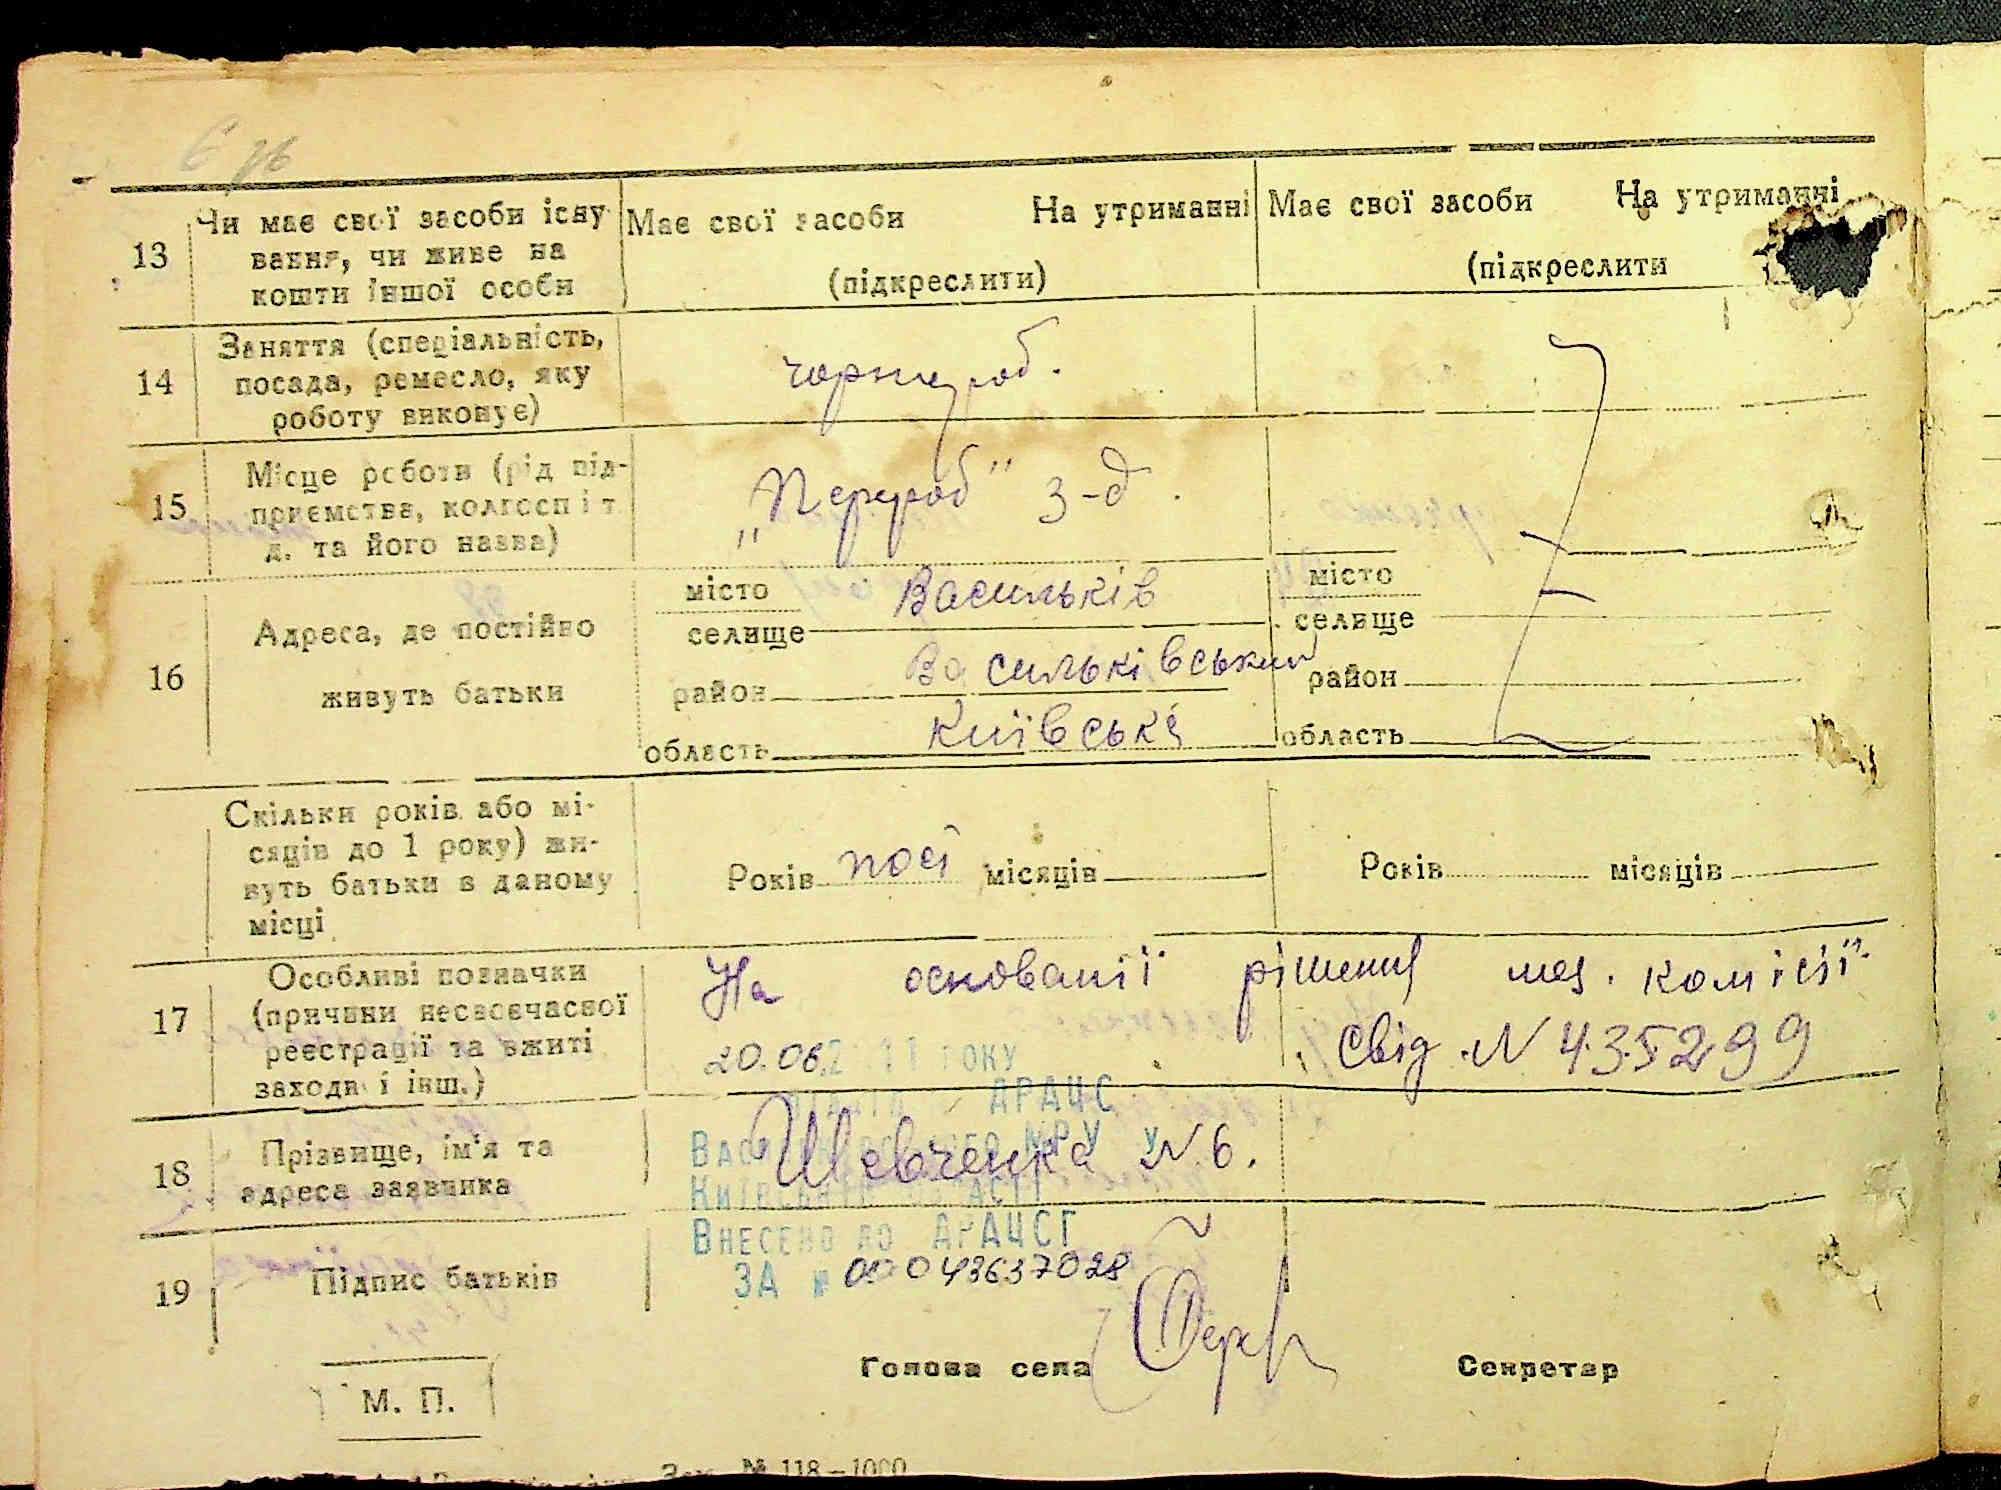 13
Чи має свої засоби існу
вання, чи живе на
кошти іншої особи
Має свої засоби На утриманні
(підкреслити)
Має свої засоби На утриманні
(підкреслити
14
Заняття (спеціальність,
посада, ремесло, яку
роботу виконує)
чорнороб.
15
Місце роботи (рід під-
приємства, колгосп і т
д. та його назва)
"Перероб" з-д.
16
Адреса, де постійно
живуть батьки
місто Васильків
селище
район Васильківський
область Київська
місто
селище
район
область
Скільки років або мі-
сяців до 1 року) жи-
вуть батьки в даному
місці
Років пост місяців
Років місяців
17
Особливі позначки
(причини несвоєчасної
реєстрації та вжиті
заходи і інш.)
На основанії рішення мед. комісії.
Свід. N 435299
20.06.2 11 року
АРАЦС
МРУ У
18
Прізвище, ім'я та
адреса заявника
Шевченка N 6.
Внесено до ДРАЦСГ
ЗА № 00043637028
19
Підпис батьків
Голова села
Секретар
М. П.
Зак. № 118-1000